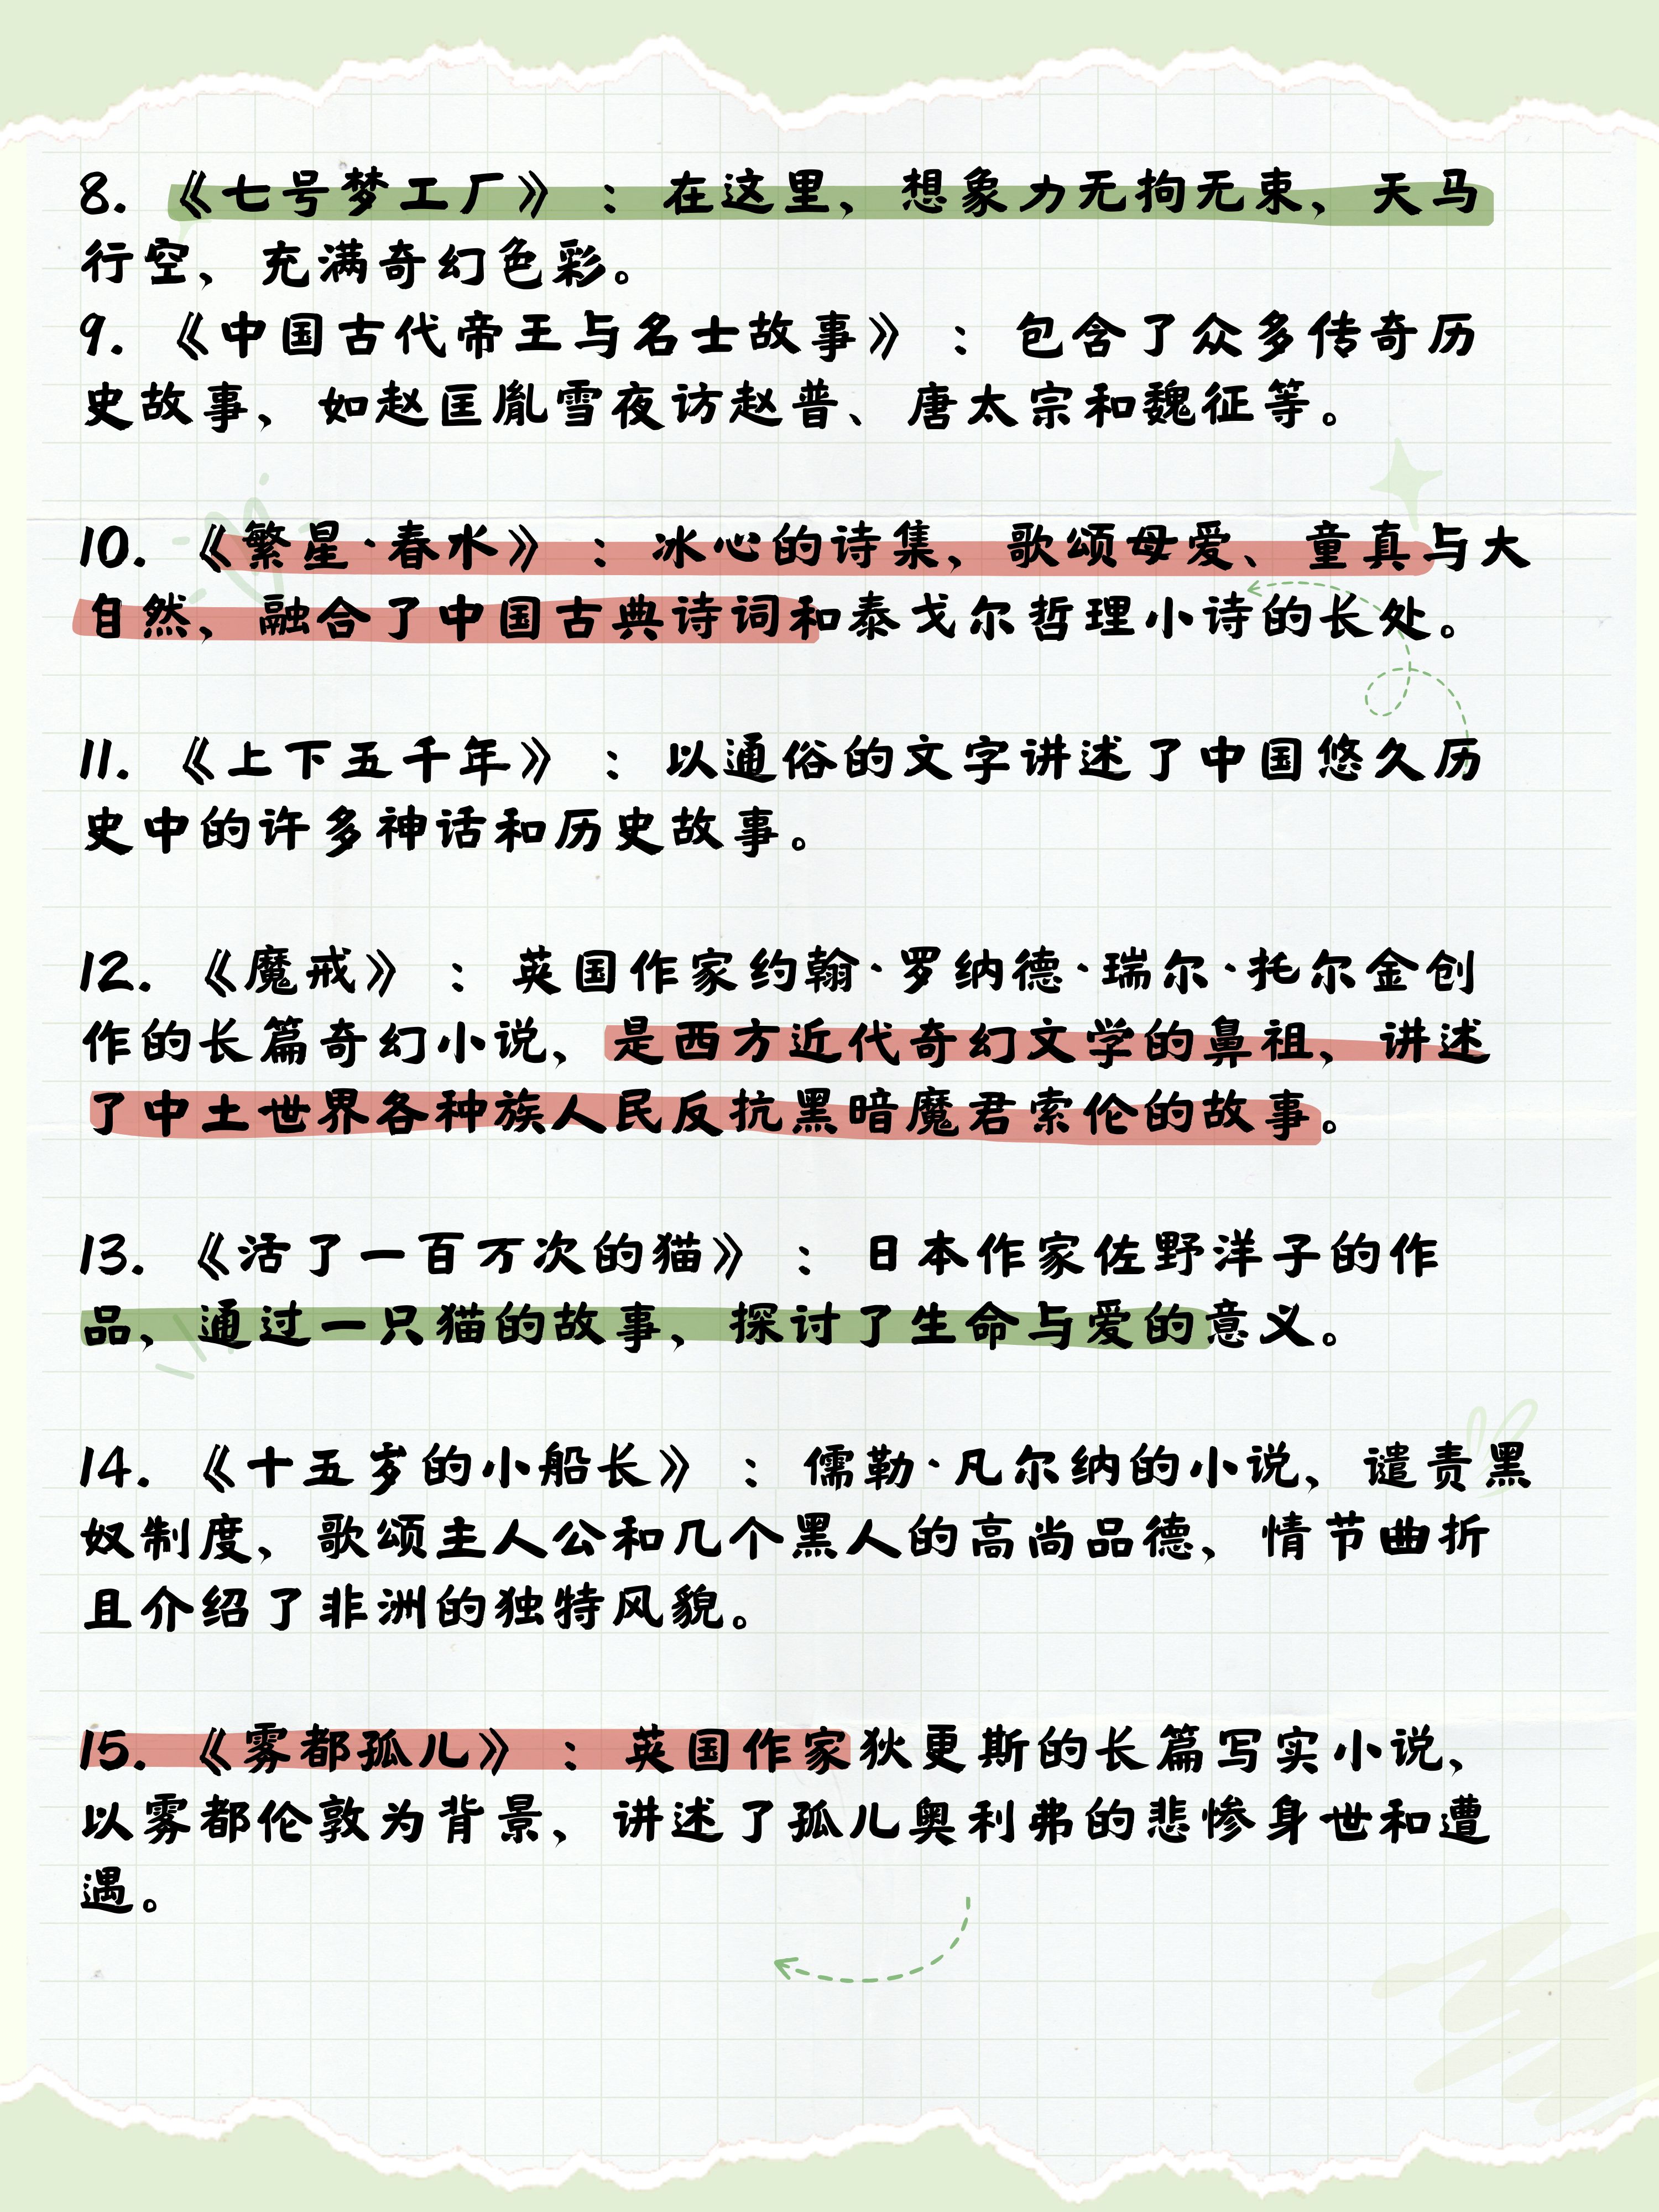 8. 《七号梦工厂》 ： 在这里，想象力无拘无束，天马
行空，充满奇幻色彩。
9. 《中国古代帝王与名士故事》 ： 包含了众多传奇历
史故事，如赵匡胤雪夜访赵普、唐太宗和魏征等。
10. 《繁星·春水》 ： 冰心的诗集，歌颂母爱、童真与大
自然，融合了中国古典诗词和泰戈尔哲理小诗的长处。
11. 《上下五千年》 ： 以通俗的文字讲述了中国悠久历
史中的许多神话和历史故事。
12. 《魔戒》 ： 英国作家约翰·罗纳德·瑞尔·托尔金创
作的长篇奇幻小说，是西方近代奇幻文学的鼻祖，讲述
了中土世界各种族人民反抗黑暗魔君索伦的故事。
13. 《活了一百万次的猫》 ： 日本作家佐野洋子的作
品，通过一只猫的故事，探讨了生命与爱的意义。
14. 《十五岁的小船长》 ： 儒勒·凡尔纳的小说，谴责黑
奴制度，歌颂主人公和几个黑人的高尚品德，情节曲折
且介绍了非洲的独特风貌。
15. 《雾都孤儿》 ： 英国作家狄更斯的长篇写实小说，
以雾都伦敦为背景，讲述了孤儿奥利弗的悲惨身世和遭
遇。